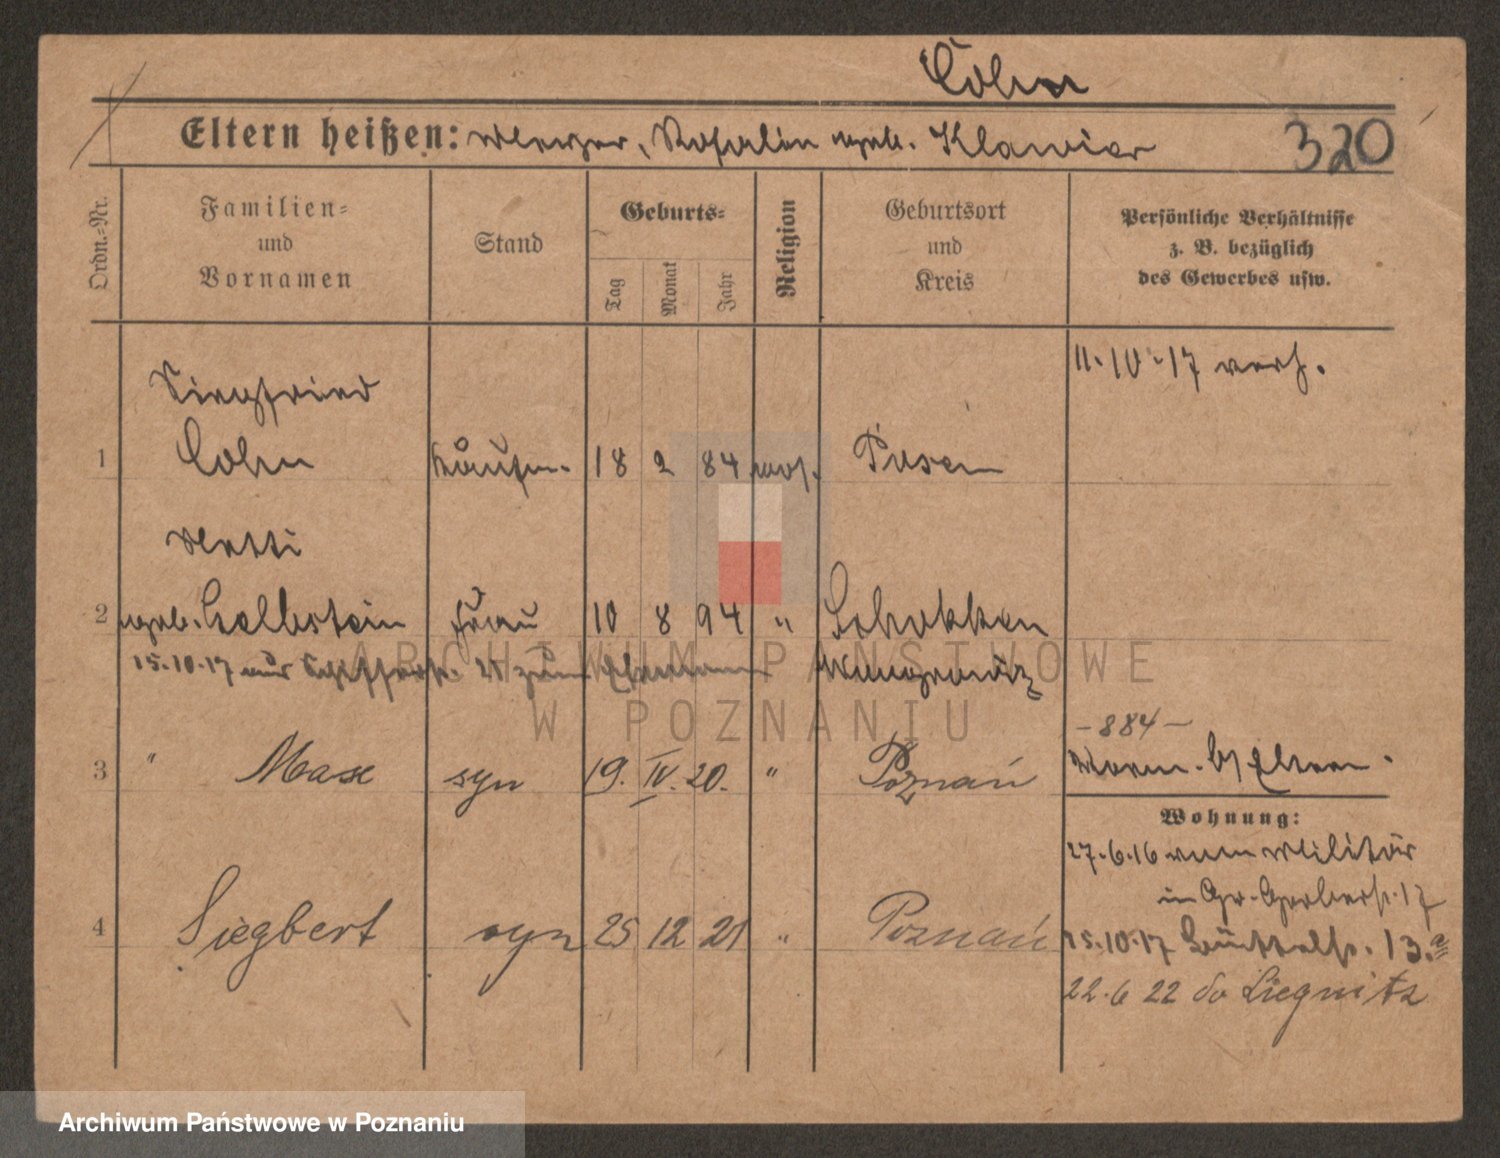 Cohn
Eltern heißen: Meyer, Rosalie geb. Klawier 320
Ordn.-Nr.
Familien- und Vornamen
Stand
Geburts-
Tag Monat Jahr
Religion
Geburtsort und Kreis
Persönliche Verhältnisse z. B. bezüglich des Gewerbes usw.
11.10.17 verh.
Siegfried
1 Cohn Kaufm. 18 2 84 mos. Posen
Netti
2 geb. Selbstein Frau 10 8 94 " Schokken
15.10.17 aus Schifferstr. 21 zum Ehemann Wongrowitz
- 884 -
3 " Max syn 19. IV. 20. " Poznań
Worm. b/ Eltern.
Wohnung:
27.6.16 vom Militär
in Gr. Gerberstr. 17
4 Siegbert syn 25 12 21 " Poznań
15.10.17 Büttelstr. 13.a
22.6 22 do Liegnitz
ARCHIWUM PAŃSTWOWE
W POZNANIU
Archiwum Państwowe w Poznaniu